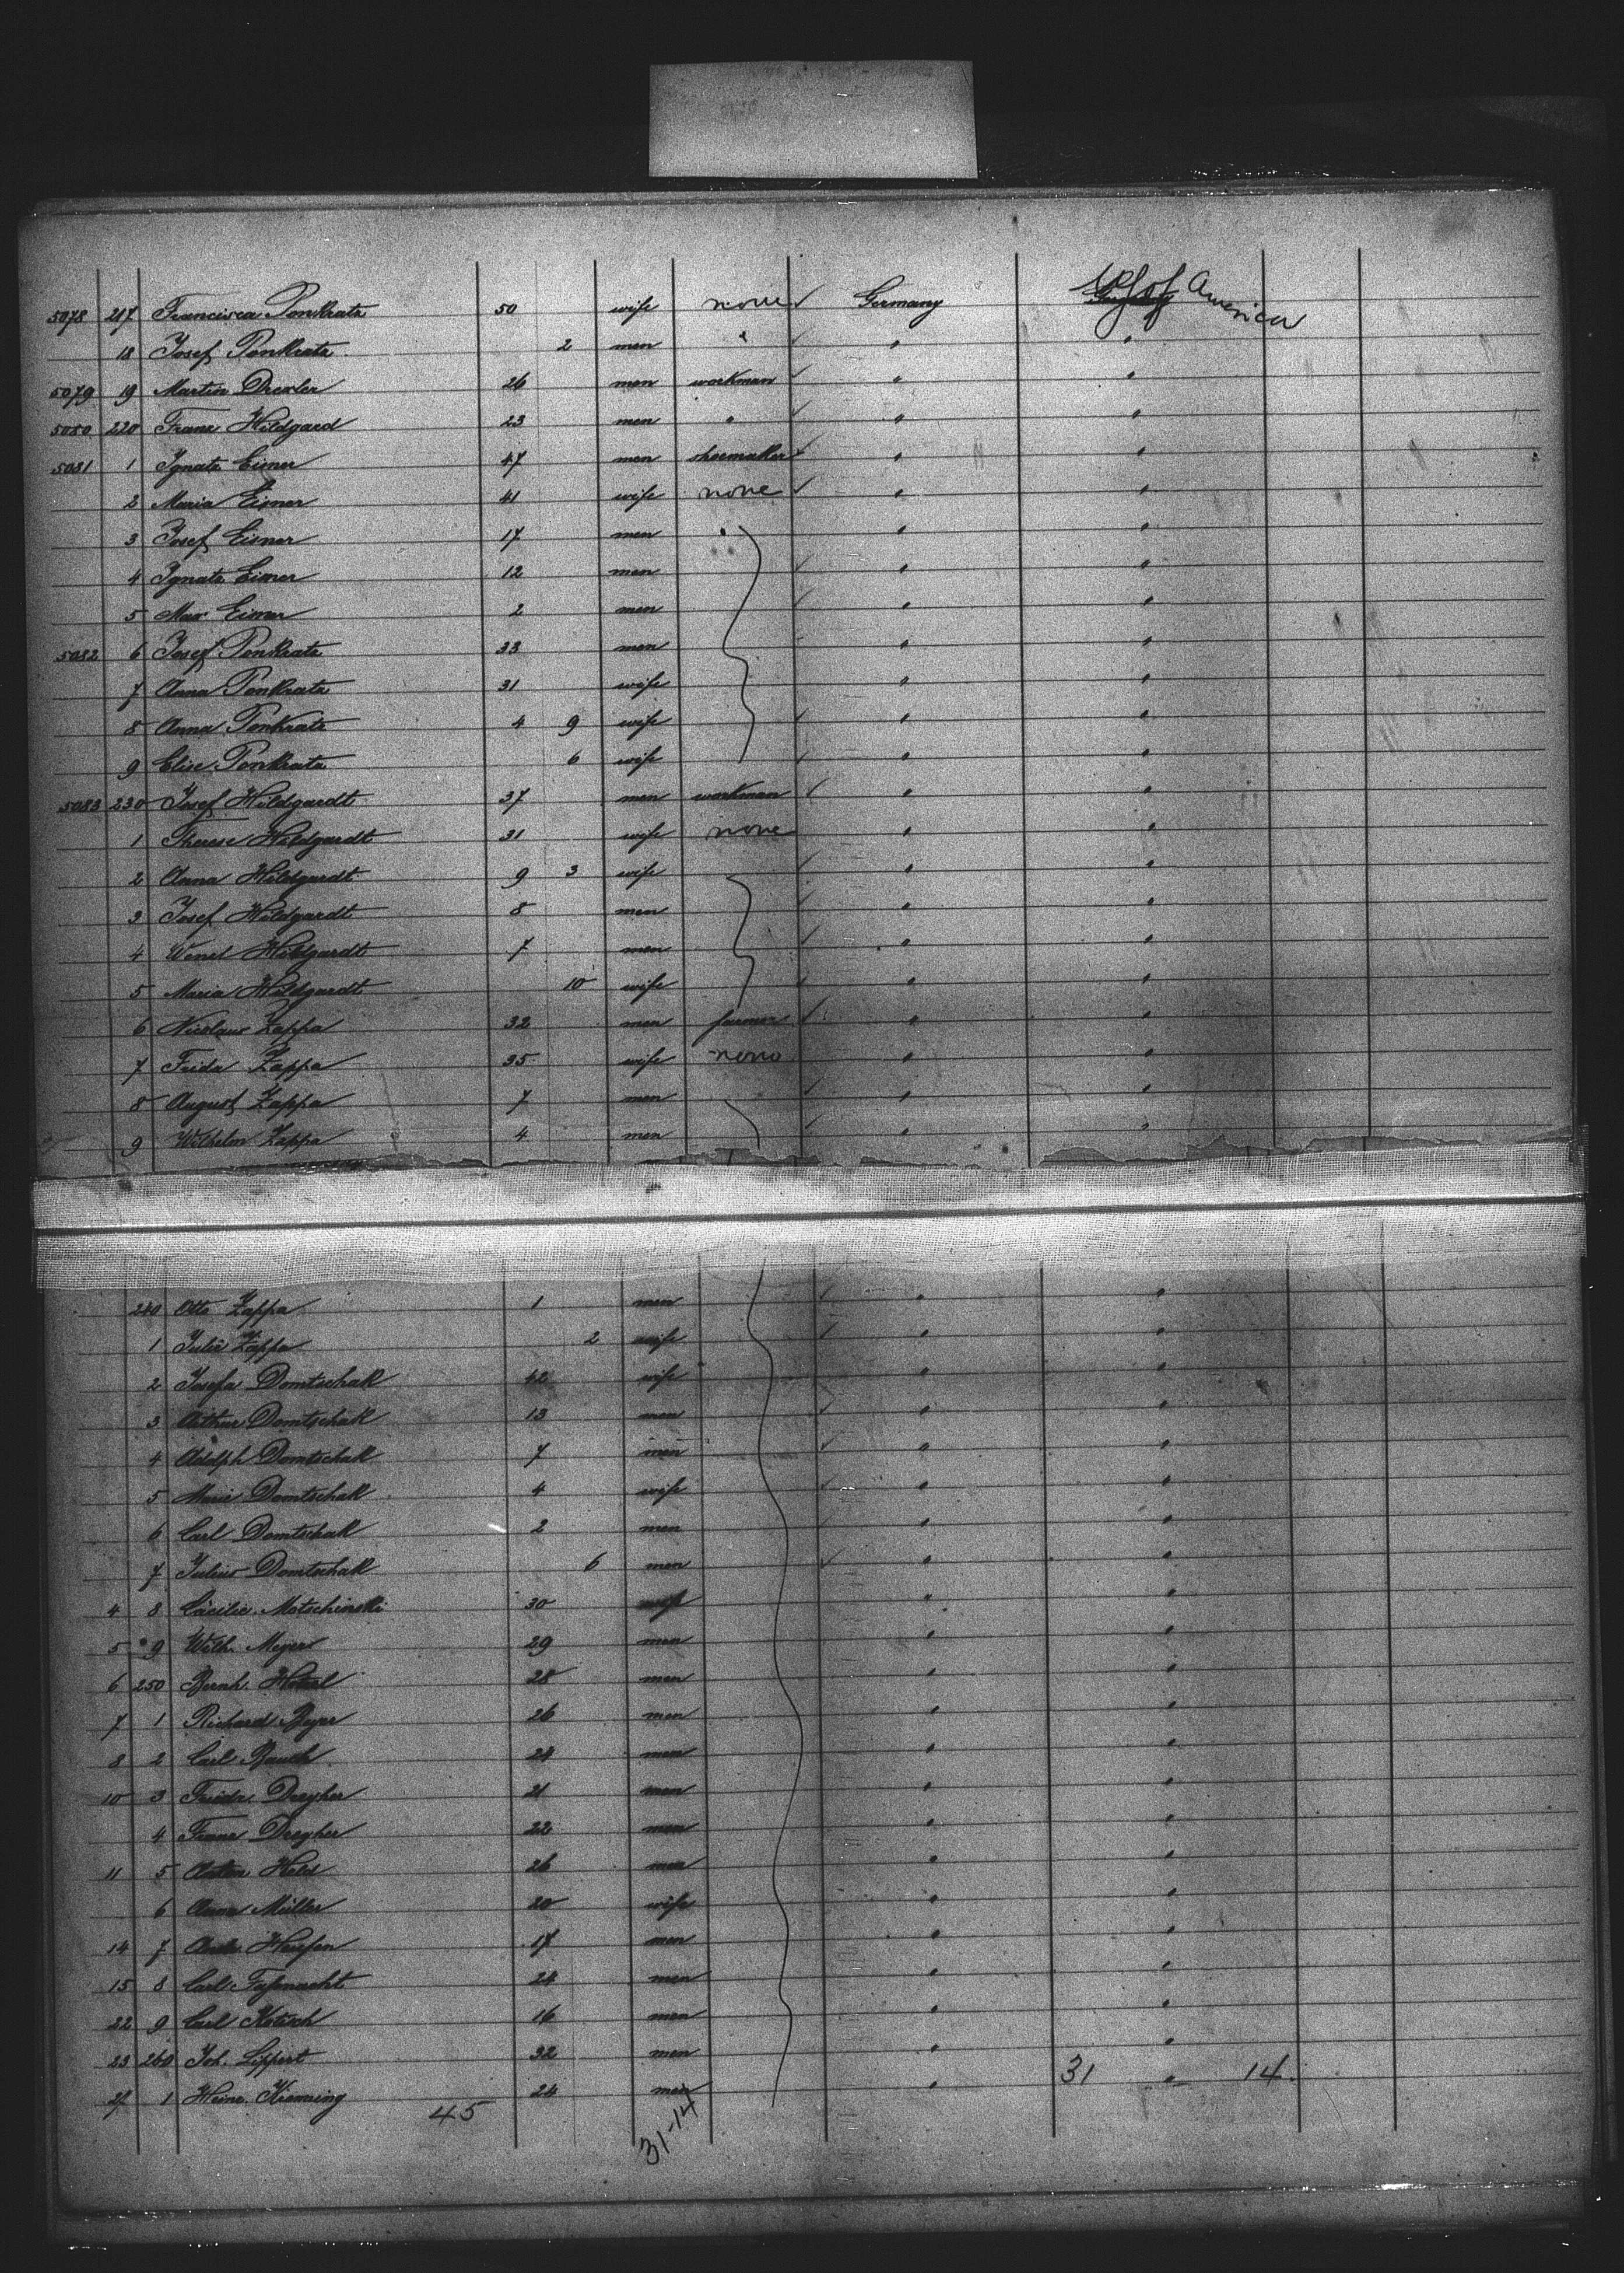 5078 217 Francisca Ponkratz 50 wife none Germany U S of America
18 Josef Ponkratz 2 men " " "
5079 19 Martin Drexler 26 men workman " "
5080 220 Franz Hildgard 23 men " " "
5081 1 Ignatz Eisner 47 men shoemaker " "
2 Maria Eisner 41 wife none " "
3 Josef Eisner 17 men " " "
4 Ignatz Eisner 12 men " "
5 Max Eisner 2 men " "
5082 6 Josef Ponkratz 33 men " "
7 Anna Ponkratz 31 wife " "
8 Anna Ponkratz 4 9 wife " "
9 Elise Ponkratz 6 wife " "
5083 230 Josef Hildgardt 37 men workman " "
1 Therese Hildgardt 31 wife none " "
2 Anna Hildgardt 9 3 wife " "
3 Josef Hildgardt 8 men " "
4 Wenzl Hildgardt 7 men " "
5 Maria Hildgardt 10 wife " "
6 Nicolaus Zappa 32 men farmer " "
7 Frida Zappa 35 wife none " "
8 August Zappa 7 men " "
9 Wilhelm Zappa 4 men " "
240 Otto Zappa 1 men " "
1 Julie Zappa 2 wife " "
2 Josefa Domtschak 42 wife " "
3 Arthur Domtschak 13 men " "
4 Adolph Domtschak 7 men " "
5 Marie Domtschak 4 wife " "
6 Carl Domtschak 2 men " "
7 Julius Domtschak 6 men " "
4 8 Cäcilie Motschinski 30 " "
5 9 Wilh. Meyer 29 men " "
6 250 Bernh. 28 men " "
7 1 Richard Beyer 26 men " "
8 2 Carl Bauch 24 men " "
10 3 Friedr. Dreyher 21 men " "
4 Franz Dreyher 22 men " "
11 5 Anton Held 26 men " "
6 Anna Müller 20 wife " "
14 7 17 men " "
15 8 Carl Faßnacht 24 men " "
22 9 Carl Kotsch 16 men " "
23 260 Joh. Lippert 32 men " "
27 1 Heinr. Kieming 24 men " 31 " 14
45 31-14